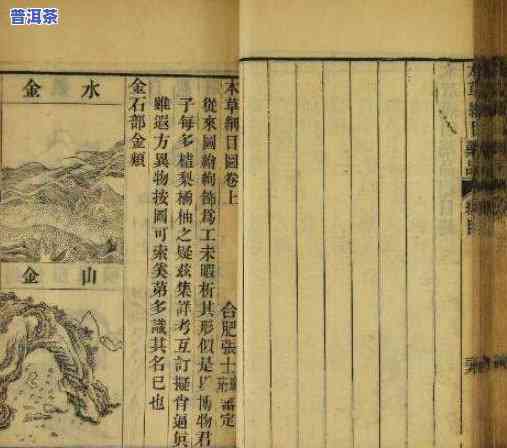 普洱茶
本草綱目圖卷上
合肥張士
審定
從來圖繪絢飾爲工未暇析其形似是以博物君
子每多樝梨橘柚之疑兹集詳考互訂擬肖逼真
雖遐方異物按圖可索奚第多識其名已也
金石部金類
水金
山金
本草綱目